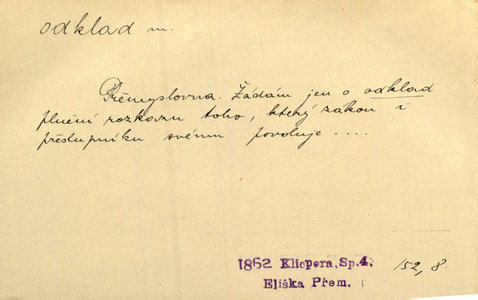 odklad m.
Přěmyslovna. Žádám jen o odklad
plnění rozkazu toho, který zákon i
přestupníku svému povoluje ....
1862 Klicpera, Sp.4.
Eliška Přem.
152, 8